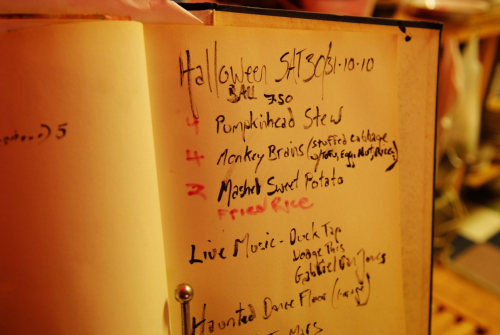 5
Halloween SAT 30/31-10-10
BALL 7.50
4 Pumpkinhead Stew
4 Monkey Brains (stuffed cabbage
w/Tofu, Egg, Nut, Rice)
2 Mashed Sweet Potato
FRIED RICE
Live Music - Duck Tap
Lodge This
Gabriel Jones
Haunted Dance Floor
Mars